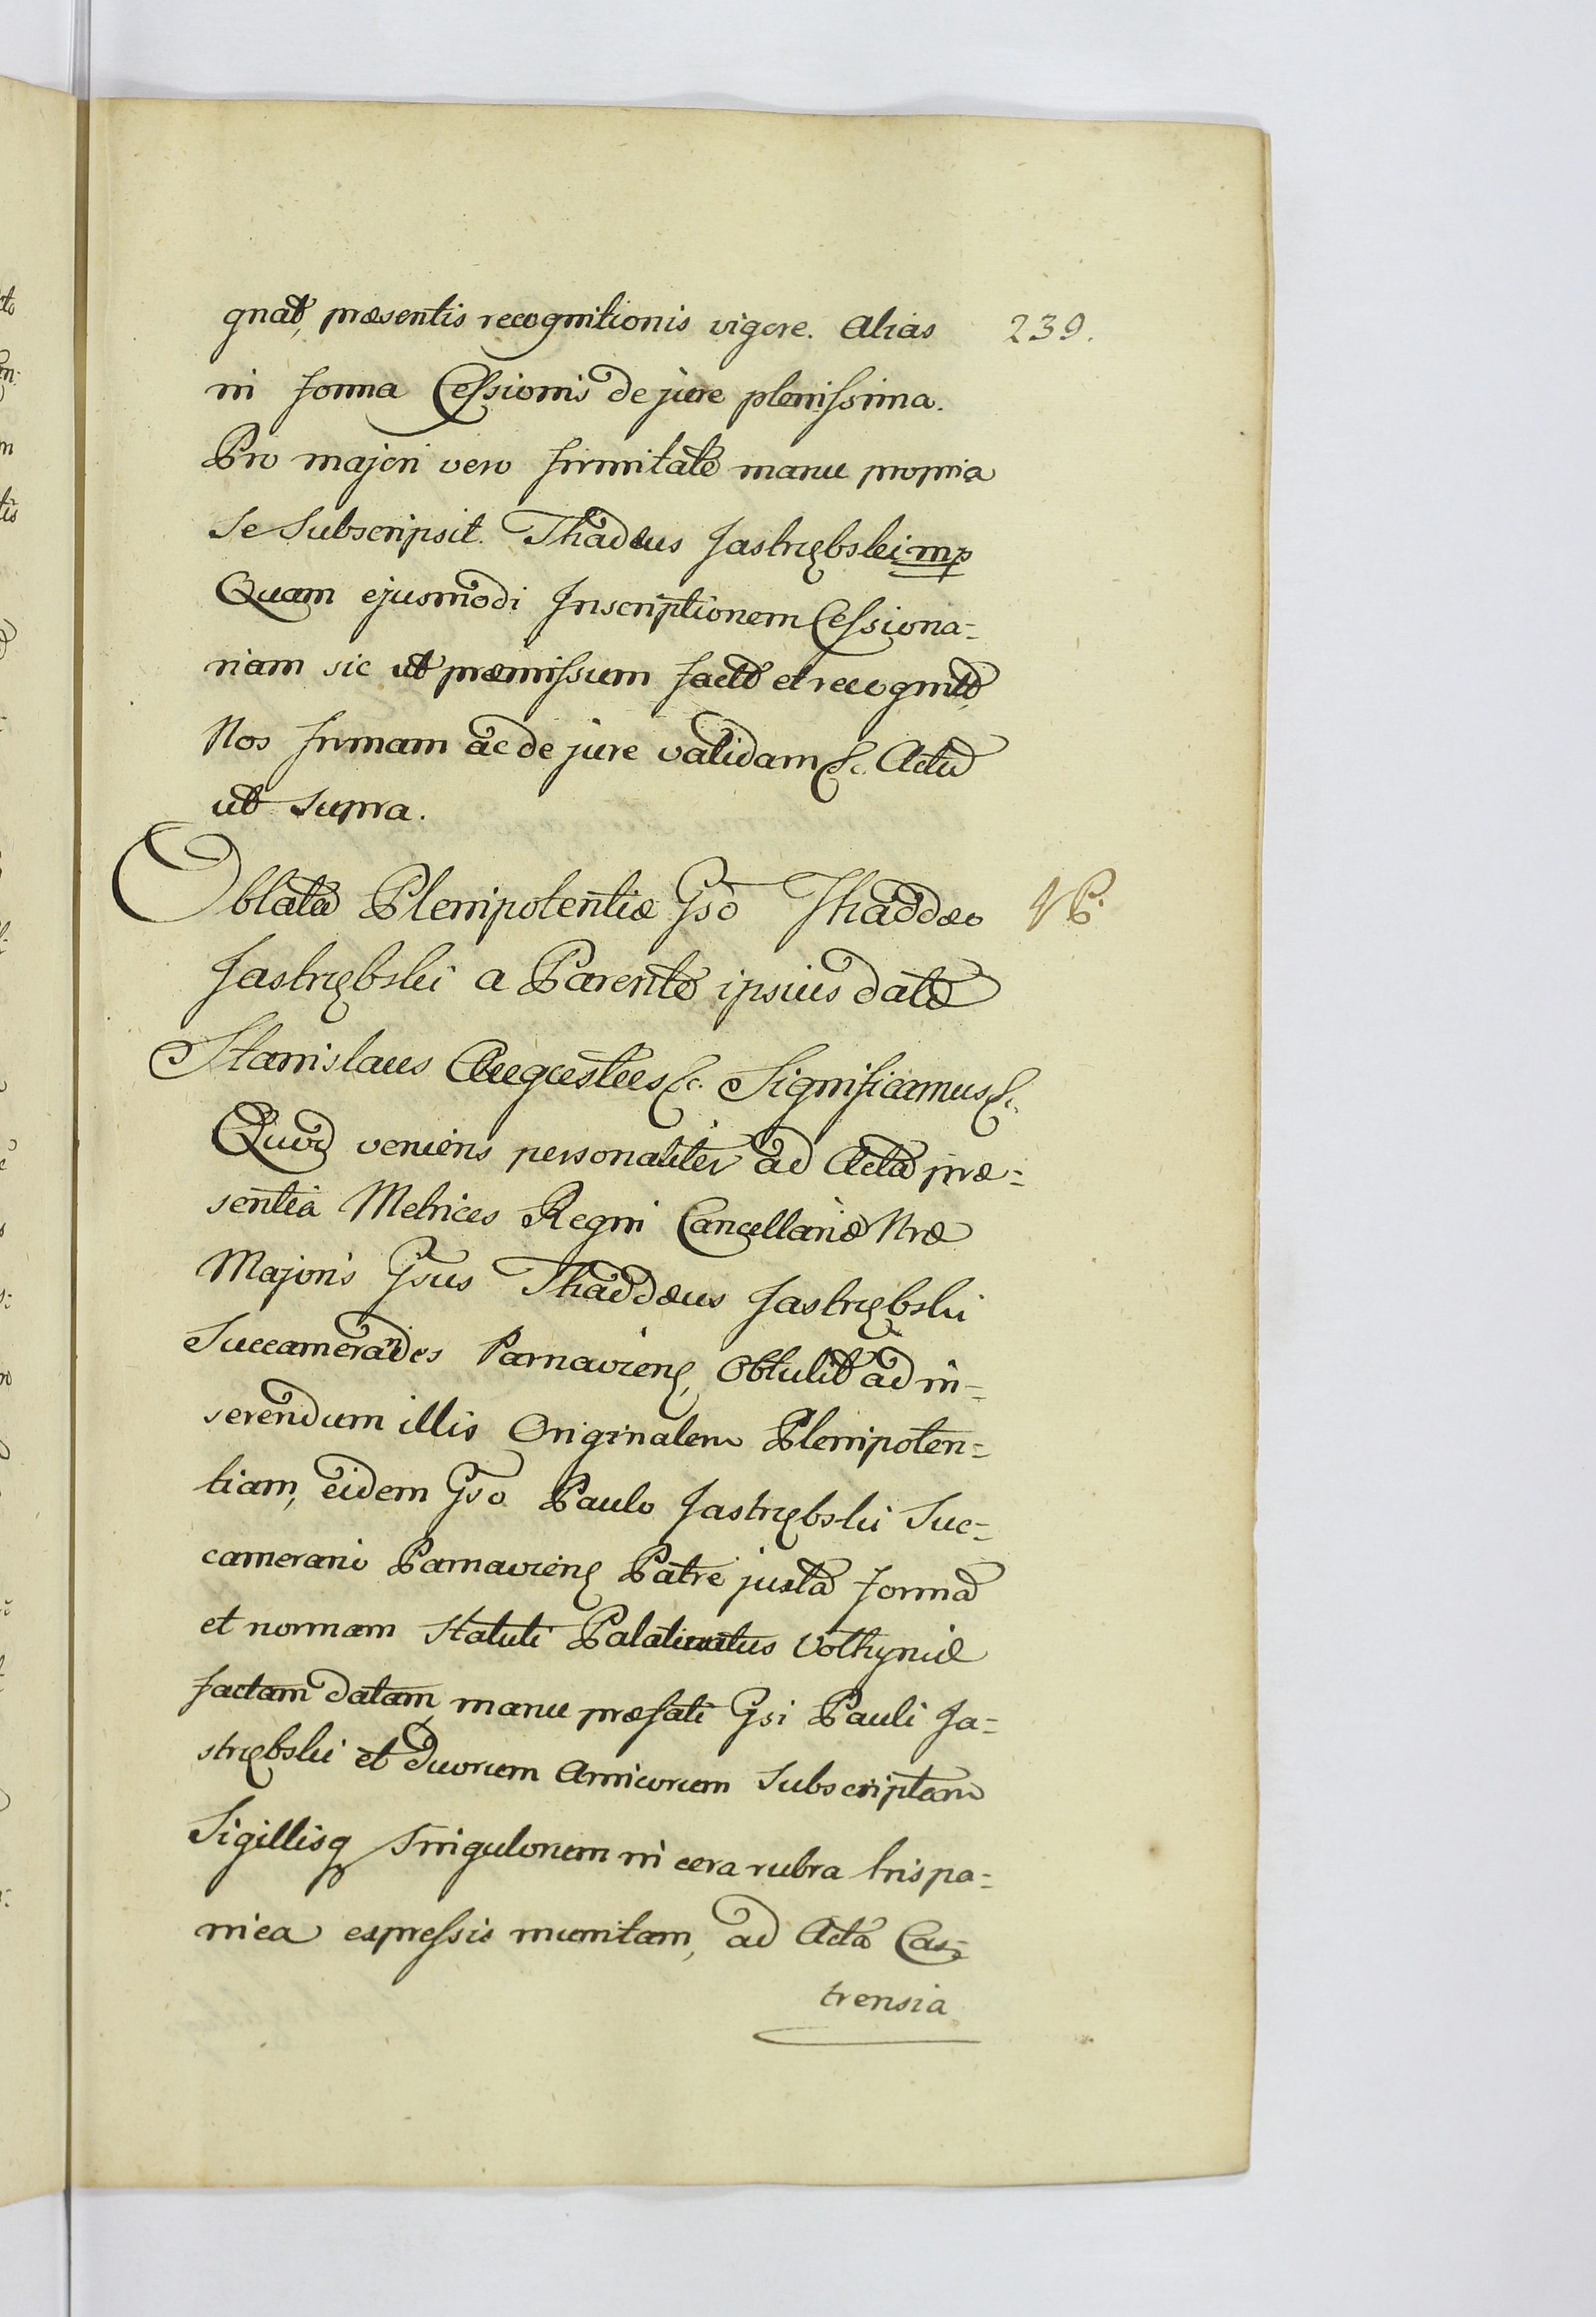 gnat, præsentis recognitionis vigore. Alias
239.
in forma Cessionis de jure plenissima.
Pro majori vero firmitate manu propria
se subscripsit. Thadæus Jastrzębski mp
Quam ejusmodi Inscriptionem Cessiona-
riam sic ut præmissum facta et recognita,
Nos firmam ac de jure validam &c. Actu
ut supra.
Oblata Plenipotentiæ Gso Thaddæo
Jastrzębski a Parente ipsius data
Stanislaus Augustus &c. Significamus &c.
Quia veniens personaliter ad Acta præ-
sentia Metrices Regni Cancellariæ Nræ
Majoris Gsus Thaddæus Jastrzębski
Succamerarides Parnaviens, obtulit ad in-
serendum illis Originalem Plenipoten-
tiam, eidem Gso Paulo Jastrzębski Suc-
camerario Parnaviens Patre juxta formã
et normam statuti Palatinatus Volhyniæ
factam datam, manu præfati Gsi Pauli Ja-
strzębski et duorum Amicorum subscriptam
Sigillisq singulorum in cera rubra hispa-
nica expressis munitam, ad Acta Cas-
trensia